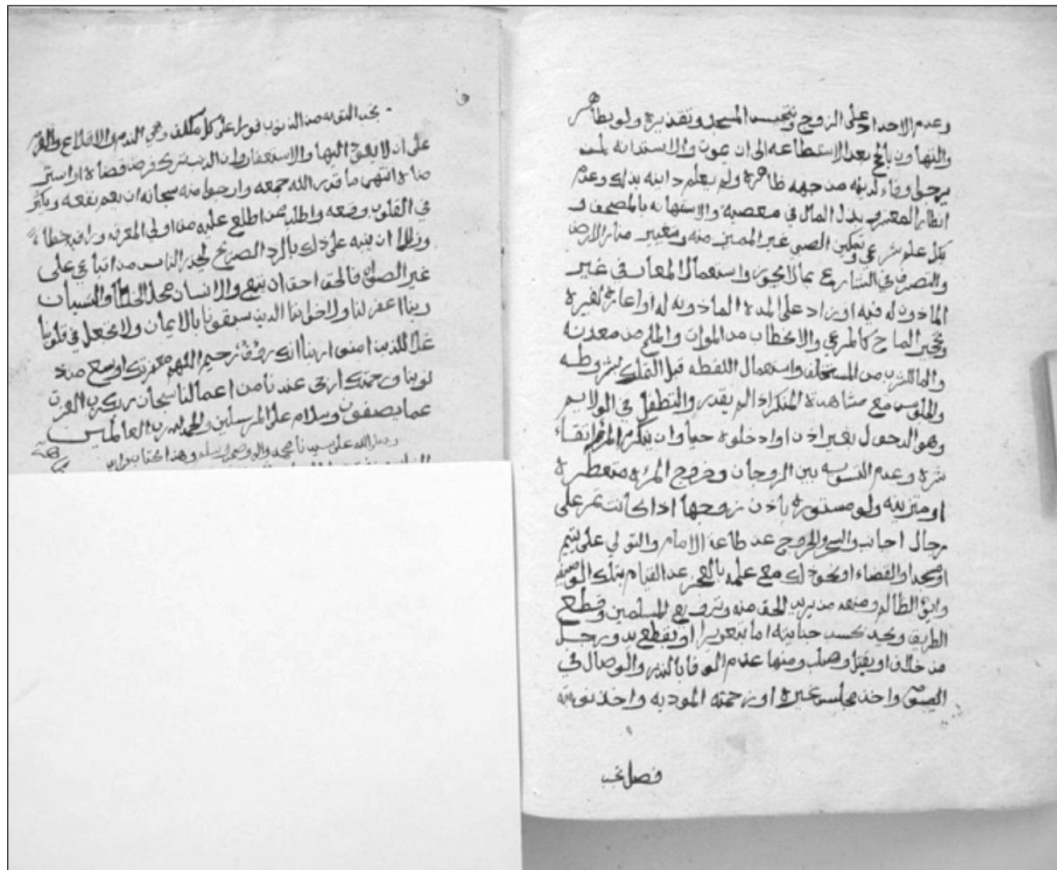 وعدم الاحداد على الزوج وتنجيس المسجد وتقذيره ولو بطاهر
والتهاون بالحج بعد الاستطاعه الى ان يموت والاستدانه لمن
يرجى وفاء لدينه من جهه ظاهرة ولم يعلم داينه بذلك وعدم
انظار المعسر وبذل المال في معصية والاستهانه بالمصحف و
بكل علم شرعي وتمكين الصبي غير المميز منه وتغيير منار الارض
والتصرف في الشارع بما لا يجوز واستعمال المعار في غير
الماذون له فيه او زاد على المدة الماذونه له او اعاره لغيره
وتحجير المباح كالمرعى والاحتطاب من الموات والملح من معدنه
والماء للشرب من المستخلف واستعمال اللقطه قبل التملك بشروطه
والجلوس مع مشاهدة المنكر اذا لم يقدر والتطفل في الولايم
وهو الدخول بغير اذن او ادخلوه حيا وان يكرم المرء اتقاء
شره وعدم التسويه بين الزوجات وخروج المرءه متعطره
او متزينه ولو مستوره باذن زوجها اذا كانت تمر على
رجال اجانب والسحر والخروج عن طاعة الامام والتولي على يتيم
او مسجد او القضاء او نحو ذلك مع علمه بالعجز عن القيام بتلك الوظيفه
وايواء الظالم ومنعه من يريد الحق منه وترويع المسلمين وقطع
الطريق ويحد بحسب جنايته اما بتعزير او بقطع يد ورجل
من خلاف او بقتل وصلب ومنها عدم الوفا بالنذر والوصال في
الصوم واخذ مجلس غيره او زحمته الموذيه واخذ نوبته
فصل تجب
تجب التوبه من الذنوب فورا على كل مكلف وهي الندم والاقلاع والعزم
على ان لا يعود اليها والاستغفار وان كان الذنب ترك فرض قضاه او
انتهى ما قدر الله جمعه وارجو منه سبحانه ان يعم نفعه ويكثر
في القلوب وقعه واطلب من اطلع عليه من اولي المعرفه وراى خطاء
وزللا ان ينبه على ذلك بالرد الصريح ليحذر الناس من اتباعي على
غير الصواب فالحق احق ان يتبع والانسان محل الخطأ والنسيان
ربنا اغفر لنا ولاخواننا الذين سبقونا بالايمان ولا تجعل في قلوبنا
غلا للذين امنوا ربنا انك رؤف رحيم اللهم مغفرتك اوسع من ذ
نوبنا ورحمتك ارجى عندنا من اعمالنا سبحان ربك رب العزة
عما يصفون وسلام على المرسلين والحمد لله رب العالمين
وصلى الله على سيدنا محمد واله وصحبه وسلم وهذا